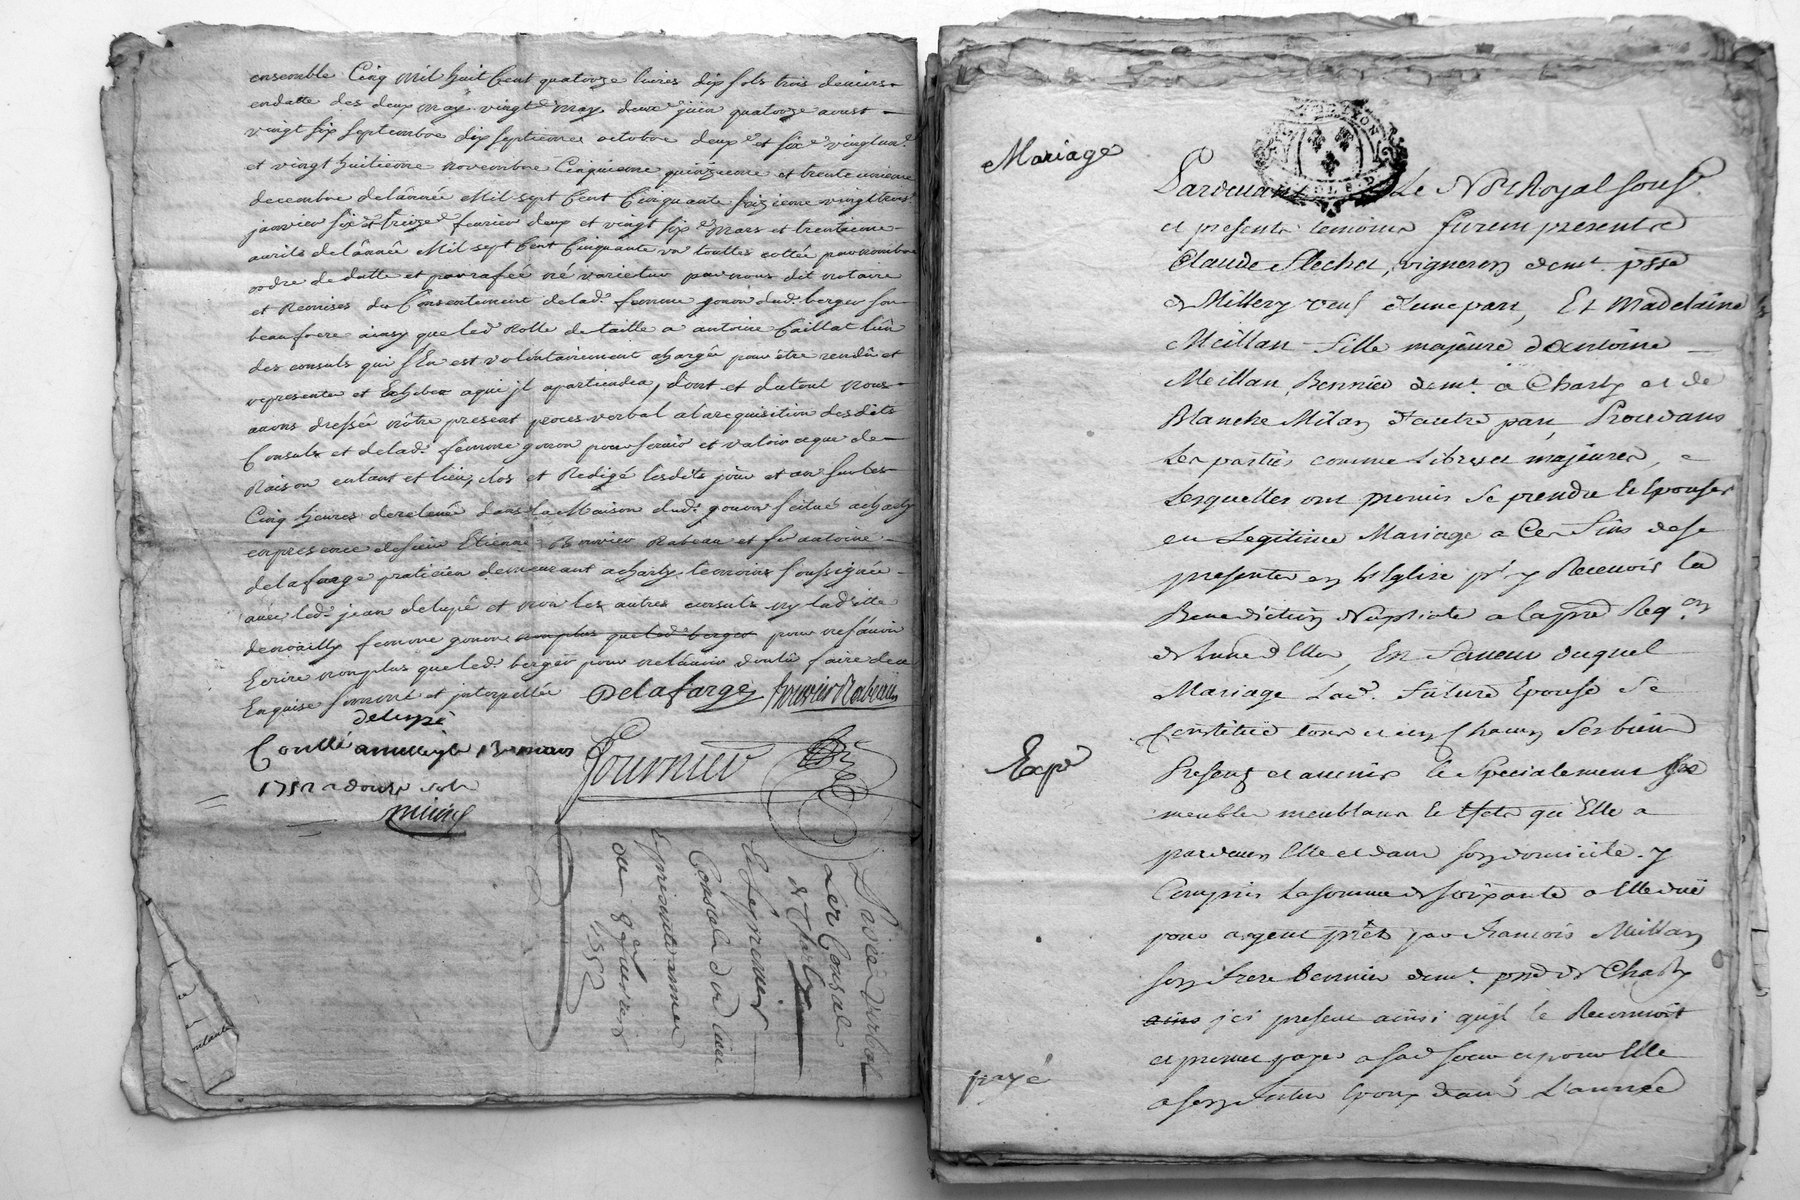 ensemble Cinq mil huit Cent quatorze livres dix sols trois deniers
endatte des deux may vingt may deux juin quatorze aoust
vingt six septembre dix septieme octobre deux et six vingtun
et vingt huitieme novembre Cinquieme quinzieme et trente unieme
decembre de lannée Mil sept Cent Cinquante seizieme vingt trois
janvier six et treize fevrier deux et vingt six mars et trentieme
avril de lannée Mil sept Cent Cinquante un touttes cottée par nombre
ordre de datte et parafée né varietur par nous dit notaire
et Remises du Consentement de lad. femme gonon dud. berger son
beaufrere ainsy que led Rolle de taille a antoine Caillat lun
des consuls qui sen est volontairement chargée pour être rendu et
representé et Exhibée a qui jl apartiendra, dont et du tout nous
avons dressée nôtre present proces verbal a la requisition desdits
Consuls et de lad. femme gonon pour servir et valoir ce que de
Raison en tant et lieu, clos et Redigé lesdits jour et an sur les
Cinq heures de relevée dans la Maison dud. gonon scitué a charly
en presence de sieur Etienne Bouvier Rabeau et sr antoine
delafarge praticien demeurant a charly temoins soussignée
avec led. jean delupé et non les autres consuls ny laditte
denoailly femme gonon non plus que led berger pour ne sçavoir
Ecrire non plus que led. berger pour ne lavoir voulu faire de ce
Enquis sommé et jnterpellée Delafarge Bouvier Rabeau
delupé
Conllé a millery le 13 mars
1752 a douze sols
Fournier
Procès verbal
Les Consuls
de Charly
Le fermier
Consuls de lan
Expedition
du 8 fevrier
1752
Mariage
Pardevant Le Nore Royal souss.
et presents temoins furent presents
Claude Flechet, vigneron demt. psse
de Millery veuf d'une part, Et Madelaine
Meillan fille majeure d'Antoine
Meillan, Bennier demt. a Charly et de
Blanche Milan d'autre part, Procedans
Les parties comme Libres et majeures,
Lesquelles ont promis se prendre et Epouser
en Legitime Mariage a Ces fins de se
presenter en Ste Eglise pr. y Recevoir la
Benediction Nuptiale a la pre Reqon
de Lune d'Elles, En faveur duquel
Mariage Lad. future Epouse se
Constitue tous et un Chacun ses biens
Expé
Presens et avenir et specialement ses
meubles meublans et effets qu'Elle a
pardevers Elle et dans son domicile y
Compris La somme de soixante a Elle due
pour argent prêté par François Meillan
son frere Bennier demt. psse de Charly
ains jci present ainsi qu'jl le Reconnoit
et promet payer a sad soeur et pour Elle
payé
a son futur Epoux dans L'année